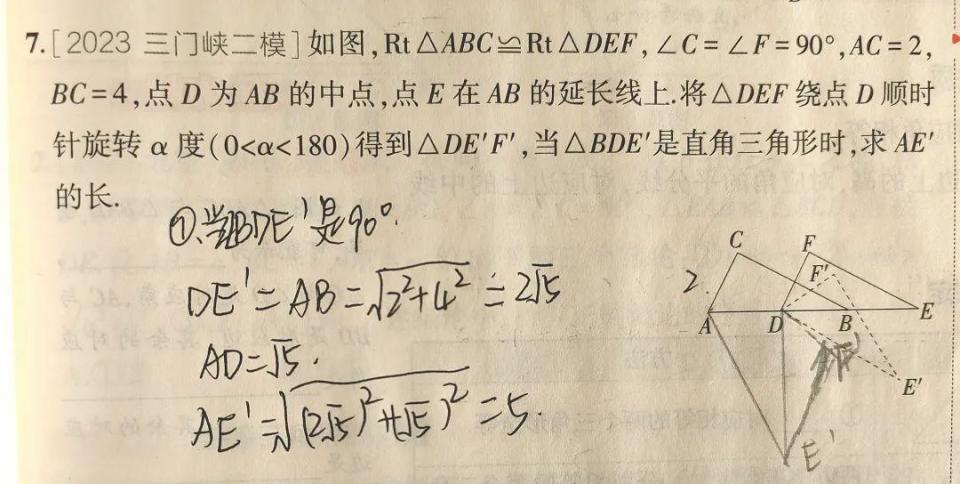 7.[2023 三门峡二模]如图,Rt△ABC≌Rt△DEF,∠C=∠F=90°,AC=2,
BC=4,点 D 为 AB 的中点,点 E 在 AB 的延长线上.将△DEF 绕点 D 顺时
针旋转 α 度(0<α<180)得到△DE'F',当△BDE'是直角三角形时,求 AE'
的长.
①.当∠BDE'是90°.
DE'=AB=√2²+4²=2√5
AD=√5.
AE'=√(2√5)²+(√5)²=5.
C F
F'
2
A D B E
E'
E'